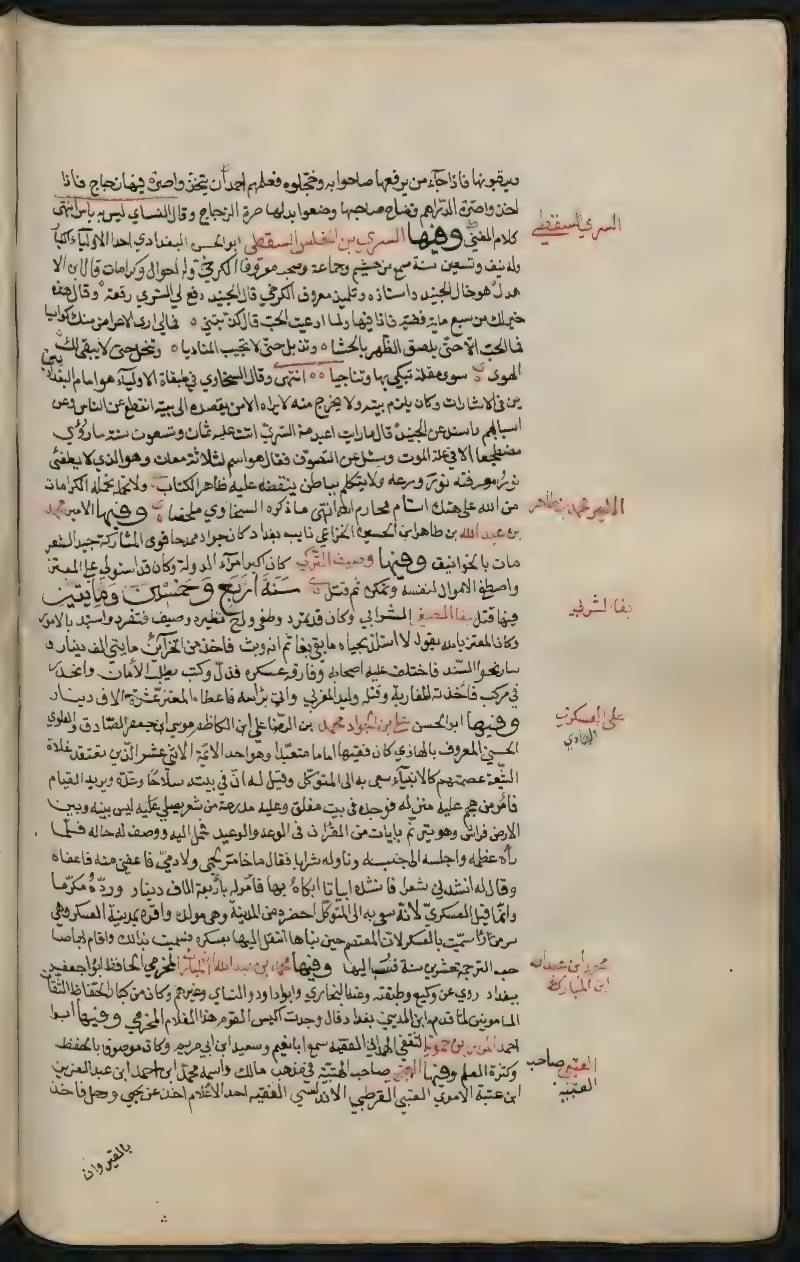 ويرقبونها فاذا جاء من يرفعها صاحوا به وخجلوه فعلمهم احد أن يتخذ واصرة فيها زجاج فاذا
اخذ واصرة الدراهم فصاح صاحبها وضعوا بدلها صرة الزجاج وقال النساي ليس به باس انتهى
كلام المغني وفيها السري بن المغلس السقطي ابو الحسن البغدادي احد الاولياء الكبار
السري السقطي
وله نيف وتسعين سنة سمع من هشيم وجماعة وصحب معروفا الكرخي وله احوال وكرامات قال ابن الا
هدل هو خال الجنيد واستاذه وتلميذ معروف الكرخي قال الجنيد دفع لي السري رقعة وقال هذه
خير لك من سبع ماية فضة فاذا فيها ولما ادعيت الحب قال كذبتني فمالي ارى الاعضا منك كواسيا
فما الحب الا حتى يلصق الظهر بالحشا وتذبل حتى لا تجيب المناديا وتنحل حتى لا يبقى لك
الهوى سوى مقلة تبكي بها وتناجيا انتهى وقال السخاوي في طبقاة الاولياء هو امام البغداد
يين في الاشارات وكان يلزم بيته ولا يخرج منه لا يراه الا من يقصده الى بيته انقطع عن الناس وعن
اسبابهم واسند عن الجنيد قال ما رايت اعبد من السري اتت عليه ثمان وتسعون سنة ما رؤي
مضطجعا الا في علة الموت وسئل عن التصوف فقال هو اسم لثلاثة معان وهو الذي لا يطفئ
نور معرفته نور ورعه ولا يتكلم بباطن ينقضه عليه ظاهر الكتاب ولا تحمله الكرامات
من الله على هتك استار محارم الله انتهى ما ذكره السخاوي ملخصا وفيها الامير محمد
الامير محمد بن طاهر
بن عبد الله بن طاهر ابن الحسين الخزاعي نايب بغداد كان جوادا ممدحا قوي المشاركة جيد الشعر
مات بالخوانيق وفيها وصيف التركي كان اكبر امراء الدولة وكان قد استولى على المعتز
واصطفى الاموال لنفسه وتمكن ثم قتل سنة اربع وخمسين ومايتين
فيها قتل بغا الصغير الشرابي وكان قد تمرد وطغى وراح نظيره وصيف فتفرد واستبد بالامور
بغا الشرابي
وكان المعتز بالله يقول لا استلذ بحياة ما بقي بغا ثم انه وثب فاخذ من الخزائن مايتي الف دينار و
سار نحو السند فاختلف عليه اصحابه وفارقه عسكره فذل وكتب يطلب الأمان وانحدر
في مركب فاخذته المغاربة وقتل وليد المغربي واتي براسه فاعطاه المعتز عشرة الاف دينار
وفيها ابو الحسن علي بن الجواد محمد بن الرضا علي ابن الكاظم موسى ابن جعفر الصادق العلوي
علي العسكري
الهادي
الحسيني المعروف بالهادي كان فقيها اماما متعبدا وهو احد الائمة الاثني عشر الذين تعتقد غلاة
الشيعة عصمتهم كالانبياء سعي به الى المتوكل وقيل له ان في بيته سلاحا وعدة ويريد القيام
فامر من هجم عليه منزله فوجده في بيت مغلق وعليه مدرعة من شعر يصلي عليه ليس بينه وبين
الارض فراش وهو يترنم بايات من القرآن في الوعد والوعيد فحمل اليه ووصف له حاله فلما
رآه عظمه واجلسه الى جنبه وناوله شرابا فقال ما خامر لحمي ولا دمي فاعفني منه فاعفاه
وقال له انشدني شعرا فانشده ابياتا ابكاه بها فامر له باربعة الاف دينار وردّه مكرما
وانما قيل العسكري لانه سعي به الى المتوكل احضره من المدينة وهي مولده واقره بمدينة العسكر وهي
سر من رأى سميت بالعسكر لان المعتصم حين بناها انتقل اليها بعسكره فسميت بذالك واقام بها صا
حب الترجمة عشرين سنة فنسب اليها وفيها محمد بن عبد الله ابن المبارك المخرمي الحافظ ابو جعفر
محمد ابن عبد الله
ابن المبارك
ببغداد روى عن وكيع وطبقته وعنه البخاري وابو داود والنساي وغيرهم وكان من كبار الحفاظ الثقا
المامونين لما قدم ابن المديني بغداد قال وجدت اكيس القوم هذا الغلام المخرمي وفيها ابو
احمد المرار بن حمويه الثقفي الهمداني الفقيه سمع ابا نعيم وسعيد ابن ابي مريم وكان موصوفا بالحفظ
وكثرة العلم وفيها العتبي صاحب العتبية في مذهب مالك واسمه محمد ابن احمد ابن عبد العزيز
العتبي صاحب
العتبية
ابن عتبة الاموي العتبي القرطبي الاندلسي الفقيه احد الاعلام اخذ عن يحيى ورحل فاخذ
بالقيروان